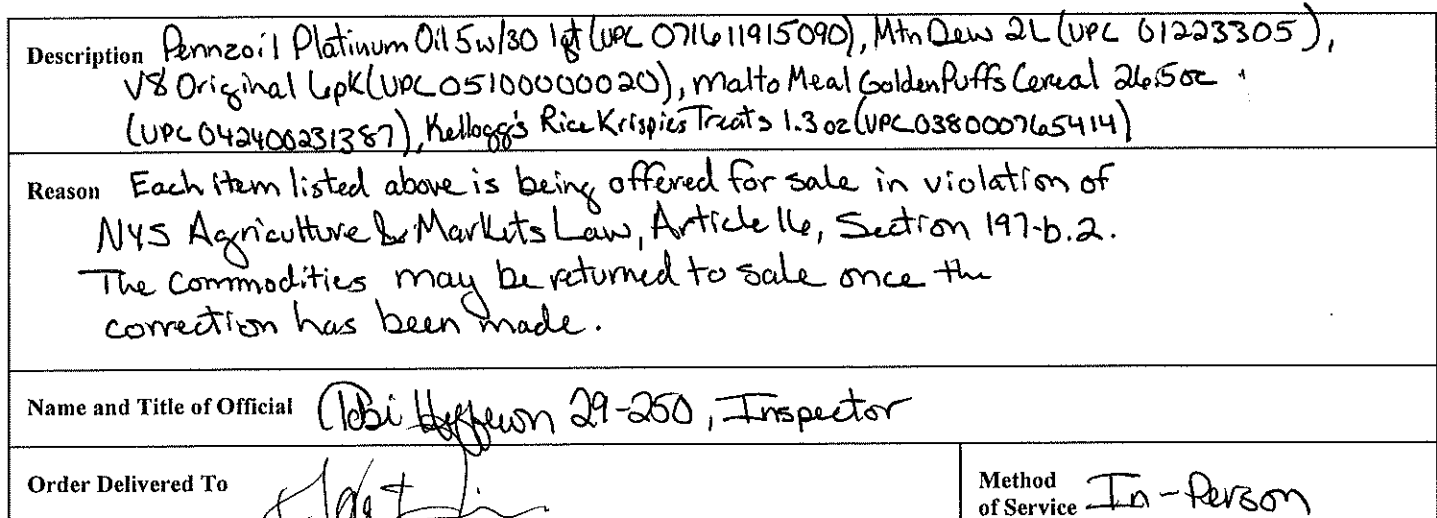 Description Pennzoil Platinum Oil 5w/30 1qt (UPC 071611915090), Mtn Dew 2L (UPC 01223305),
V8 Original 6pk (UPC 05100000020), Malto Meal Golden Puffs Cereal 26.5oz
(UPC 042400231387), Kellogg's Rice Krispies Treats 1.3 oz (UPC 038000765414)
Reason Each item listed above is being offered for sale in violation of
NYS Agriculture & Markets Law, Article 16, Section 197-b.2.
The commodities may be returned to sale once the
correction has been made.
Name and Title of Official 29-250, Inspector
Order Delivered To
Method
of Service In-Person